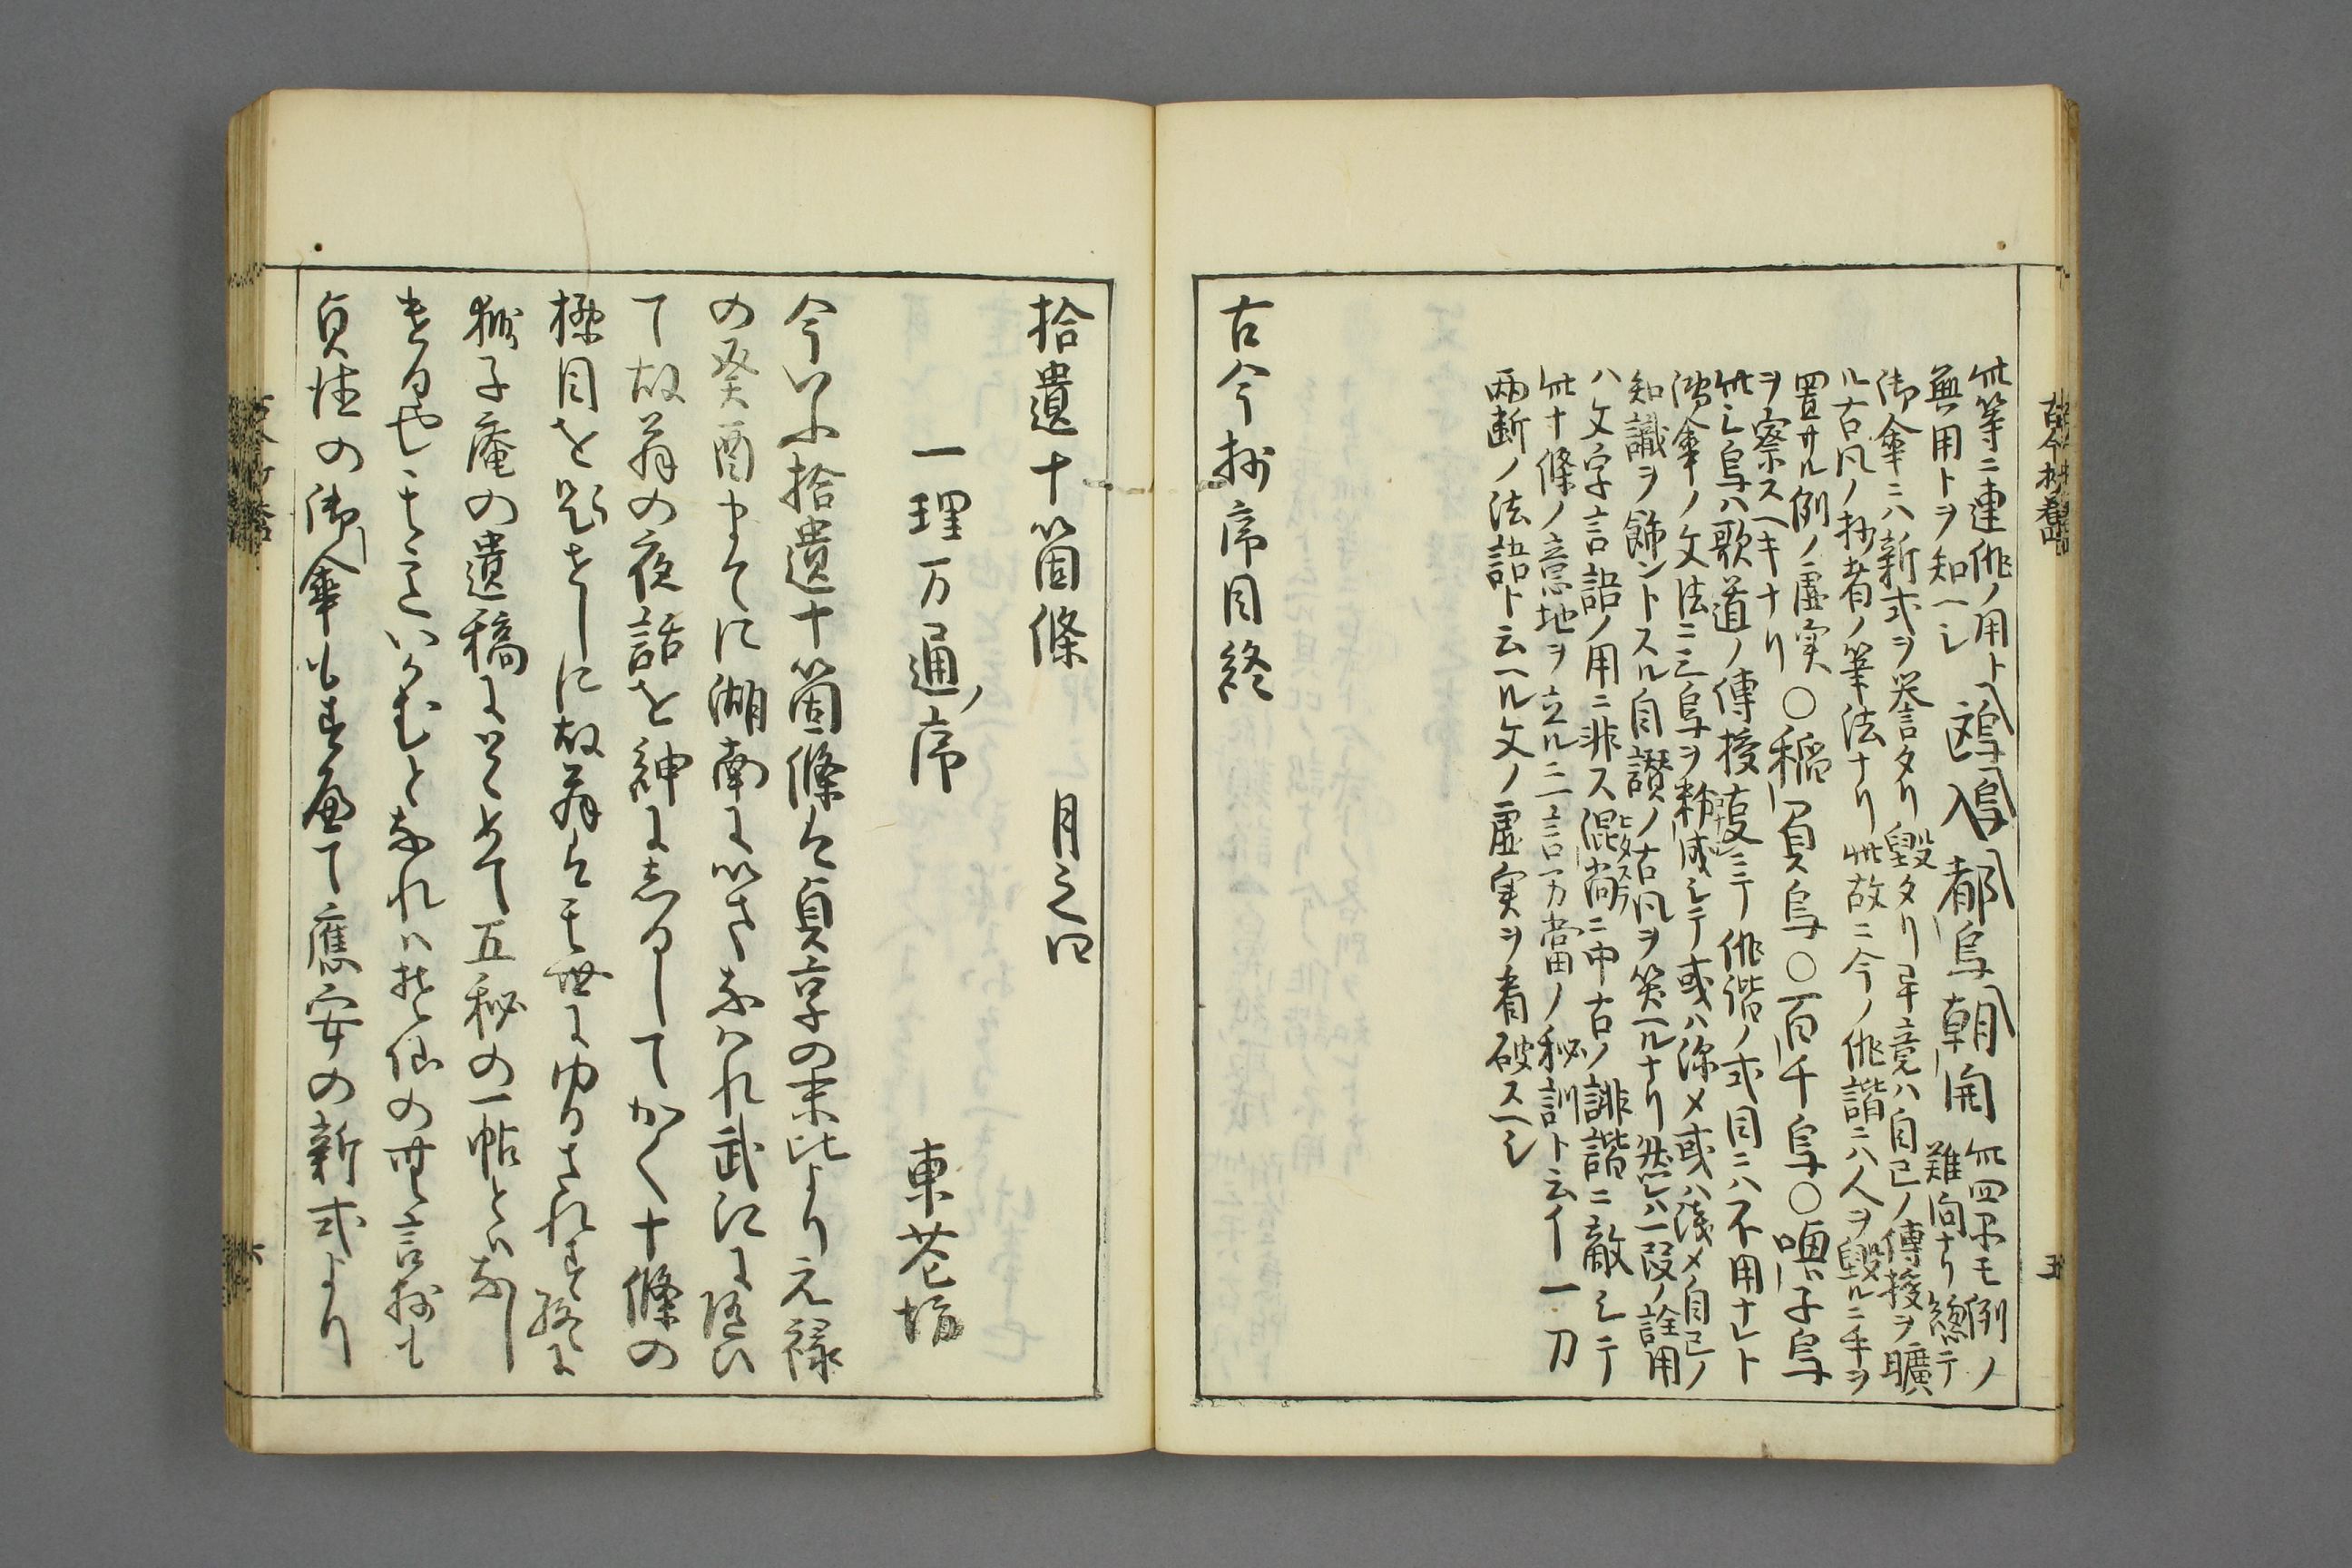 古今抄巻四
五
此等ニ連俳ノ用ト
無用トヲ知ヘシ
鴎入
鳥
都鳥
朝開
此四ネモ例ノ
難向ナリ總テ
御傘ニハ新式ヲ誉タリ毀タリ畢竟ハ自己ノ傳授ヲ曠
ル古凡ノ抄者ノ筆法ナリ此故ニ今ノ俳諧ニハ人ヲ毀ルニ手ヲ
置サル例ノ虚実
○稲負鳥○百千鳥○喚子鳥
ヲ察スヘキナリ
此三鳥ハ歌道ノ傳授事ニテ俳諧ノ式目ニハ不用ナレト
御傘ノ文法ニ三鳥ヲ粧成シテ或ハ深メ或ハ淺メ自己ノ
知識ヲ飾ントスル自讃ノ古凡ヲ笑ヘルナリ然レハ一段ノ詮用
ハ文字言語ノ用ニ非ス混尚ニ中古ノ誹諧ニ敵シテ
此十條ノ意地ヲ立ル二三言万當ノ秘訓ト云イ一刀
両断ノ法語ト云ヘル文ノ虚実ヲ看破スヘシ
古今抄序目終
拾遺十箇條 月之口
一理万通ノ序 東花坊
今いふ拾遺十箇條は貞享の末比より元禄
の癸酉まてに湖南にいさなはれ武江に随ひ
て故翁の夜話を紳にしるしてかく十條の
標目を題せしに故翁は其世にゆるされす終に
獅子庵の遺稿にとゝめて五秘の一帖となし
ける也其これいかむとなれはそも〳〵の言抄も
貞徳の御傘もすへて應安の新式より
六